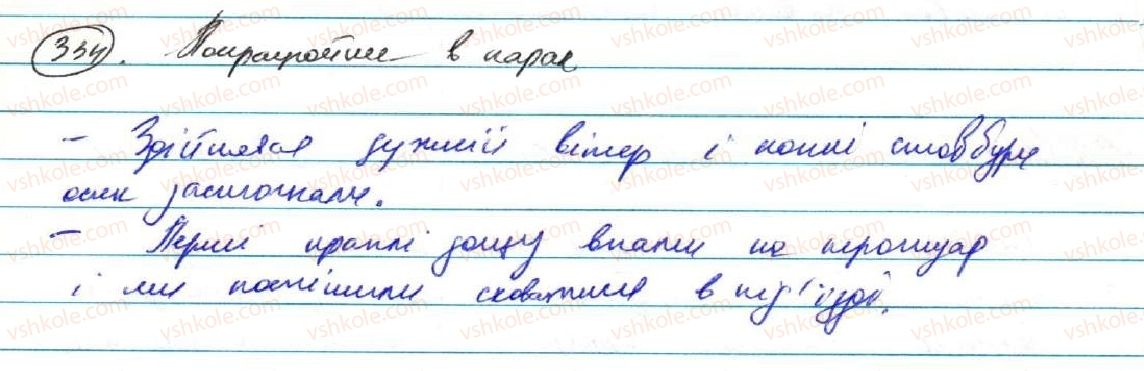 334. Попрацюйте в парах
- Здійнявся дужий вітер і тонкі стовбури
осик застогнали.
- Перші краплі дощу впали на тротуар
і ми поспішили сховатися в під'їзді.